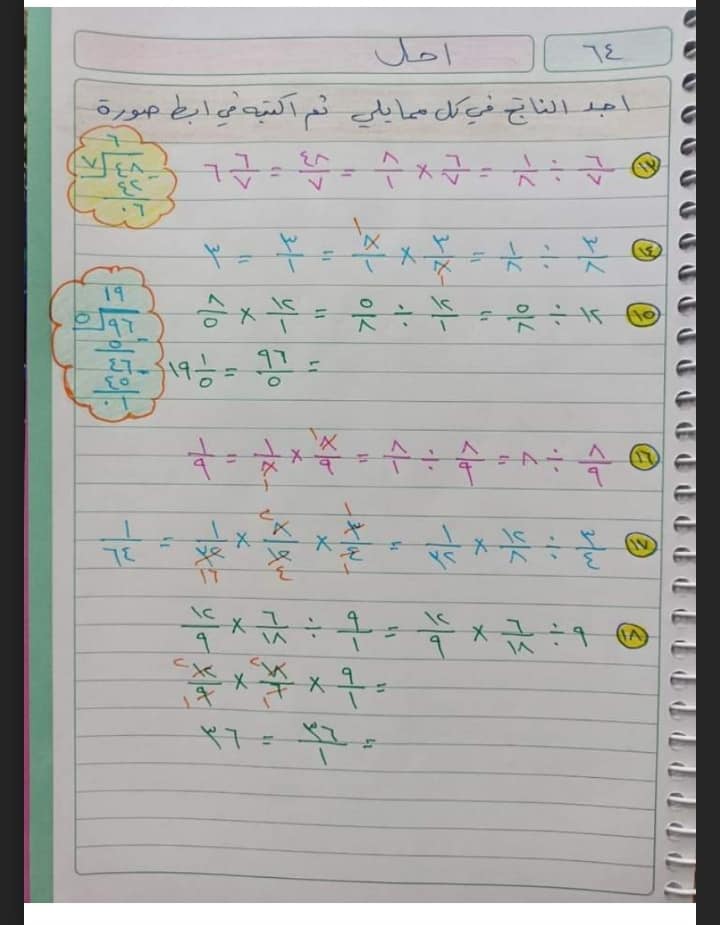 ٦٤ احل
اجد الناتج في كل مما يلي ثم اكتبه في ابط صورة
١٣ ٦/٧ ÷ ١/٨ = ٦/٧ × ٨/١ = ٤٨/٧ = ٦ ٦/٧
٦
٧ ٤٨
- ٤٢
٠٦
١٤ ٣/٨ ÷ ١/٨ = ٣/٨ × ٨/١ = ٣/١ = ٣
١٥ ١٢ ÷ ٥/٨ = ١٢/١ ÷ ٥/٨ = ١٢/١ × ٨/٥
= ٩٦/٥ = ١٩ ١/٥
١٩
٥ ٩٦
- ٥
٤٦
- ٤٥
٠١
١٦ ٨/٩ ÷ ٨ = ٨/٩ ÷ ٨/١ = ٨/٩ × ١/٨ = ١/٩
١٧ ٣/٤ ÷ ١٢/٨ × ١/٣٢ = ٣/٤ × ٨/١٢ × ١/٣٢ = ١/٦٤
١٨ ٩ ÷ ٦/١٨ × ١٢/٩ = ٩/١ ÷ ٦/١٨ × ١٢/٩
= ٩/١ × ١٨/٦ × ١٢/٩
= ٣٦/١ = ٣٦